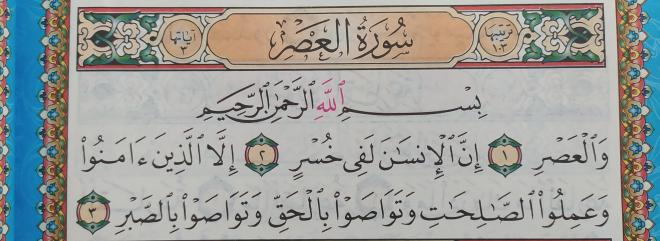 ترتيبها ١٠٣ سُورَةُ الْعَصْرِ آياتها ٣
بِسْمِ ٱللَّهِ ٱلرَّحْمَٰنِ ٱلرَّحِيمِ
وَٱلْعَصْرِ ١ إِنَّ ٱلْإِنسَٰنَ لَفِى خُسْرٍ ٢ إِلَّا ٱلَّذِينَ ءَامَنُوا۟
وَعَمِلُوا۟ ٱلصَّٰلِحَٰتِ وَتَوَاصَوْا۟ بِٱلْحَقِّ وَتَوَاصَوْا۟ بِٱلصَّبْرِ ٣